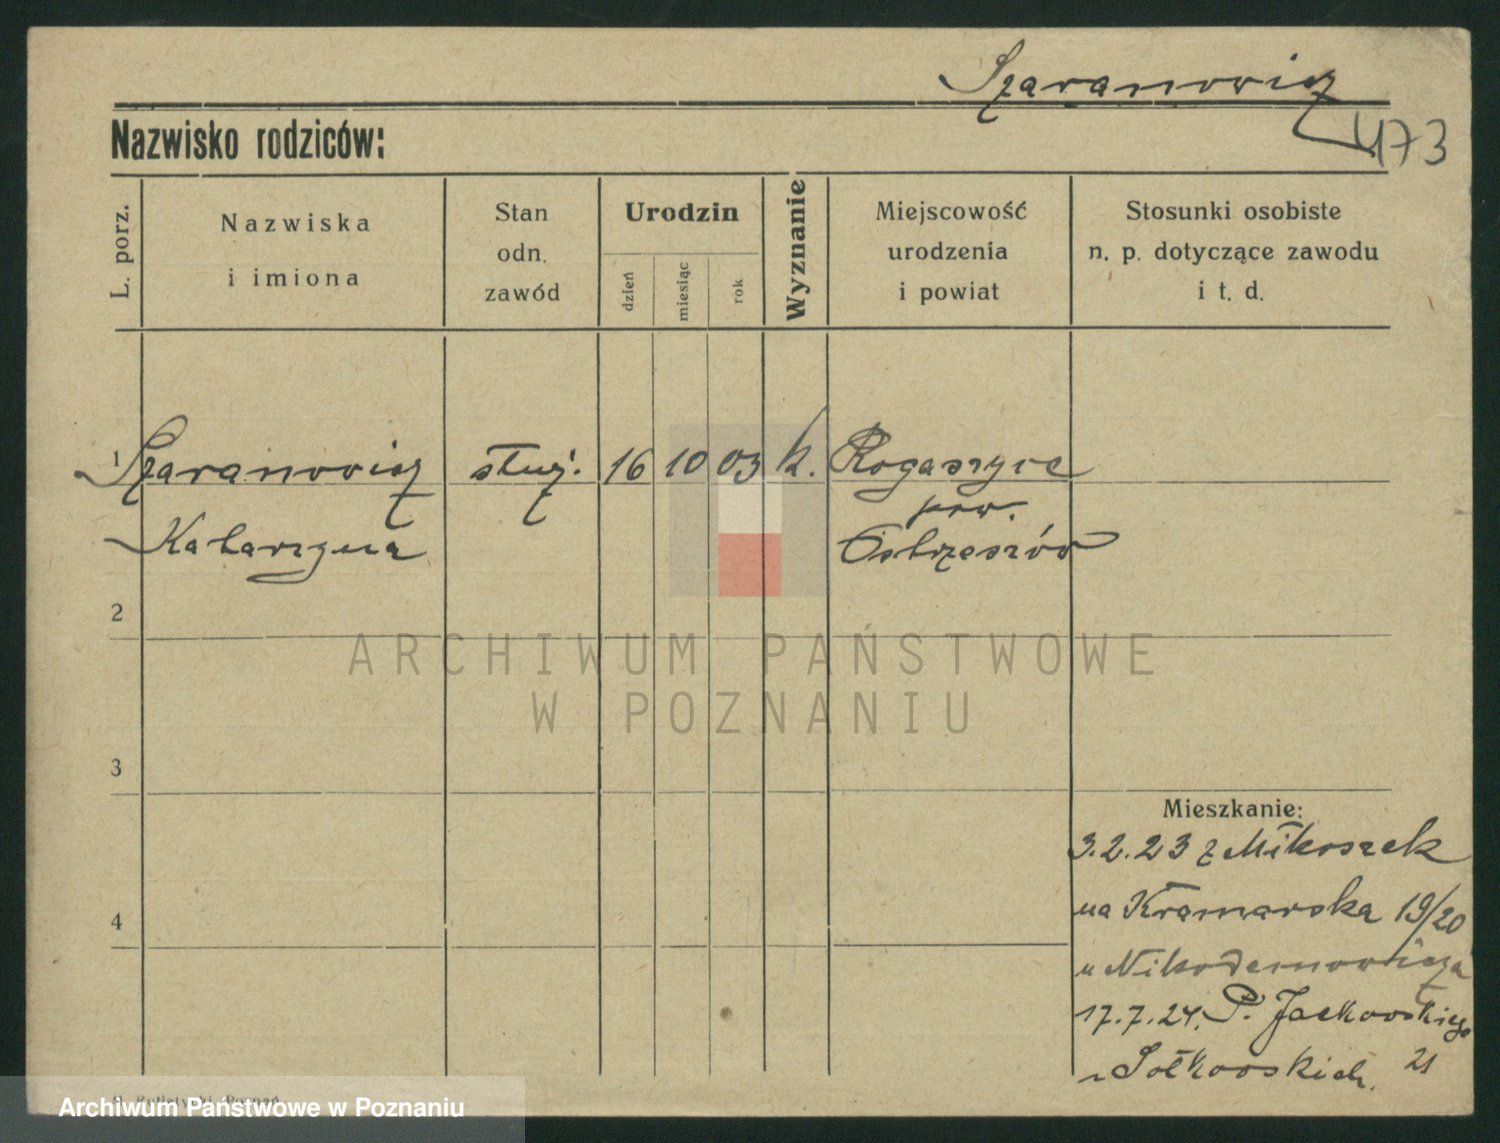 Szaranowicz
Nazwisko rodziców:
473
L. porz.
Nazwiska
i imiona
Stan
odn.
zawód
Urodzin
dzień
miesiąc
rok
Wyznanie
Miejscowość
urodzenia
i powiat
Stosunki osobiste
n. p. dotyczące zawodu
i t. d.
1 Szaranowicz służ. 16 10 03 k. Rogaszyce
pow.
Katarzyna Ostrzeszów
2
ARCHIWUM PAŃSTWOWE
W POZNANIU
3
Mieszkanie:
3.2.23 z Mikoszek
4
na Kramarska 19/20
u Nikodemowicza
17.7.24. P. Jackowskiego
21
u Sołkowskich.
Poznań
Archiwum Państwowe w Poznaniu